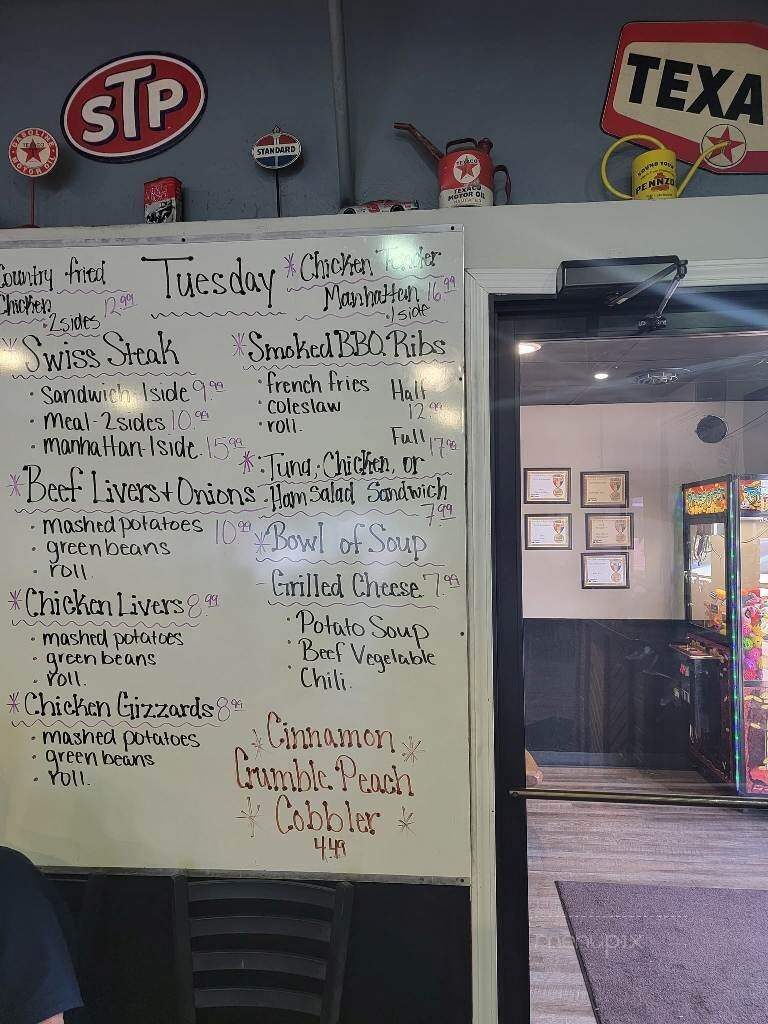 STP
TEXA
GASOLINE
TEXACO
MOTOR OIL
STANDARD
TEXACO
MOTOR OIL
PENNZO
Country fried
Chicken
· 2 sides 12.99
Tuesday
* Chicken Tender
Manhattan 16.99
· 1 side
* Swiss Steak
· Sandwich 1 side 9.99
· Meal - 2 sides 10.99
· manhattan 1 side 15.99
* Beef Livers + Onions
· mashed potatoes 10.99
· green beans
· roll.
* Chicken Livers 8.99
· mashed potatoes
· green beans
· roll.
* Chicken Gizzards 8.99
· mashed potatoes
· green beans
· roll.
* Smoked BBQ Ribs
· french fries Half
· coleslaw 12.99
· roll. Full 17.99
* Tuna, Chicken, or
Ham Salad Sandwich
7.99
* Bowl of Soup
- Grilled Cheese 7.99
· Potato Soup
· Beef Vegetable
· Chili.
Cinnamon
Crumble Peach
Cobbler
4.49
menupix